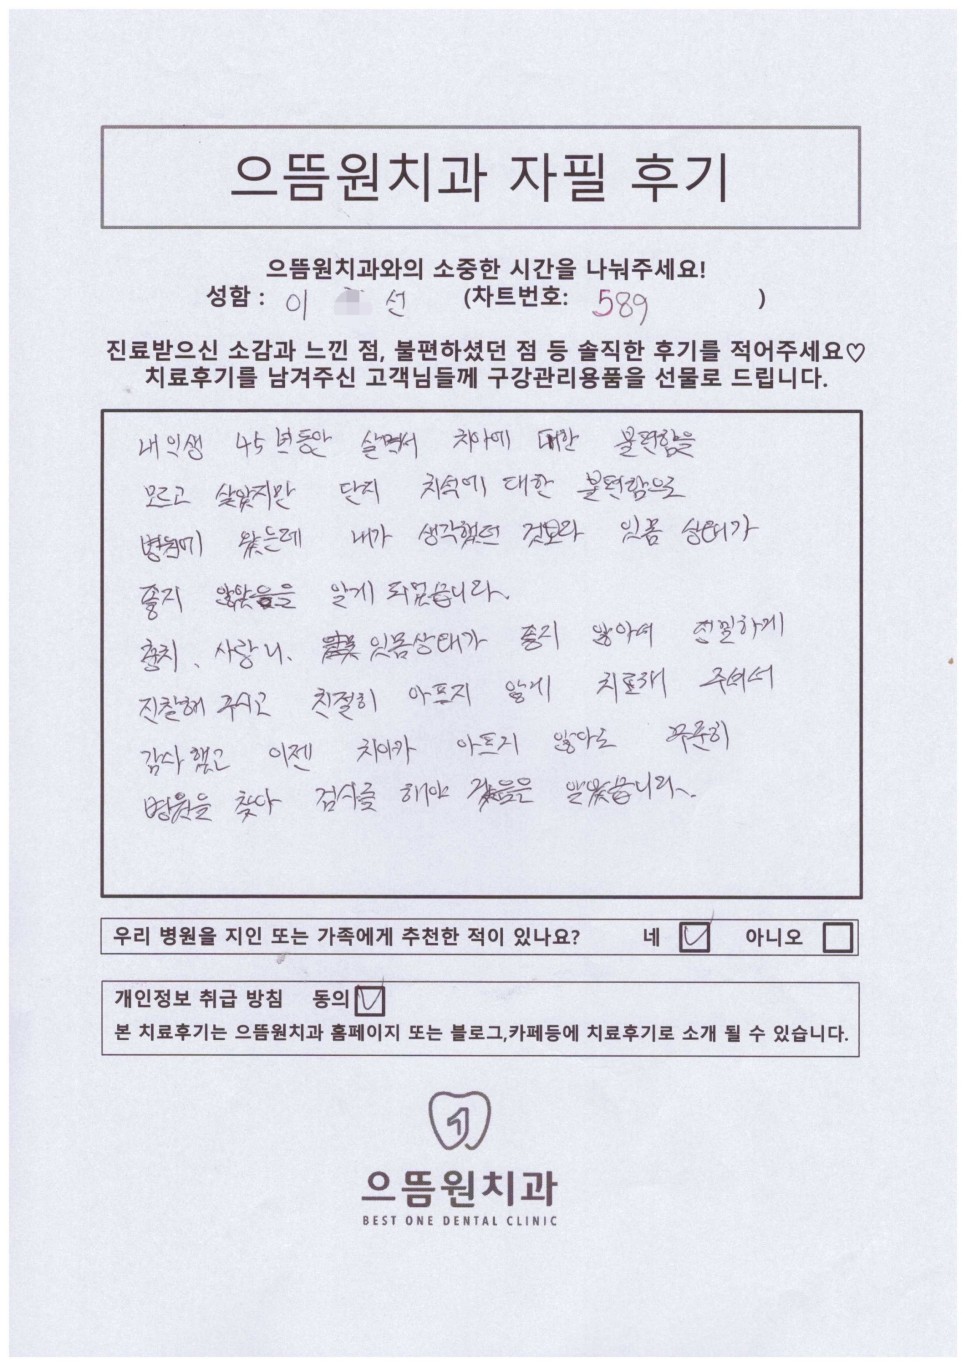 으뜸원치과 자필 후기
으뜸원치과와의 소중한 시간을 나눠주세요!
성함 : 이 선 (차트번호: 589 )
진료받으신 소감과 느낀 점, 불편하셨던 점 등 솔직한 후기를 적어주세요♡
치료후기를 남겨주신 고객님들께 구강관리용품을 선물로 드립니다.
내 인생 45년동안 살면서 치아에 대한 불편함을
모르고 살았지만 단지 치석에 대한 불편함으로
병원에 왔는데 내가 생각했던 것보다 잇몸 상태가
좋지 않았음을 알게 되었습니다.
충치, 사랑니, 잇몸상태가 좋지 않아여 정밀하게
진찰해 주시고 친절히 아프지 않게 치료해 주셔서
감사했고 이젠 치아가 아프지 않아도 꾸준히
병원을 찾아 검사를 해야 알았습니다.
우리 병원을 지인 또는 가족에게 추천한 적이 있나요? 네 아니오
개인정보 취급 방침 동의
본 치료후기는 으뜸원치과 홈페이지 또는 블로그,카페등에 치료후기로 소개 될 수 있습니다.
으뜸원치과
BEST ONE DENTAL CLINIC